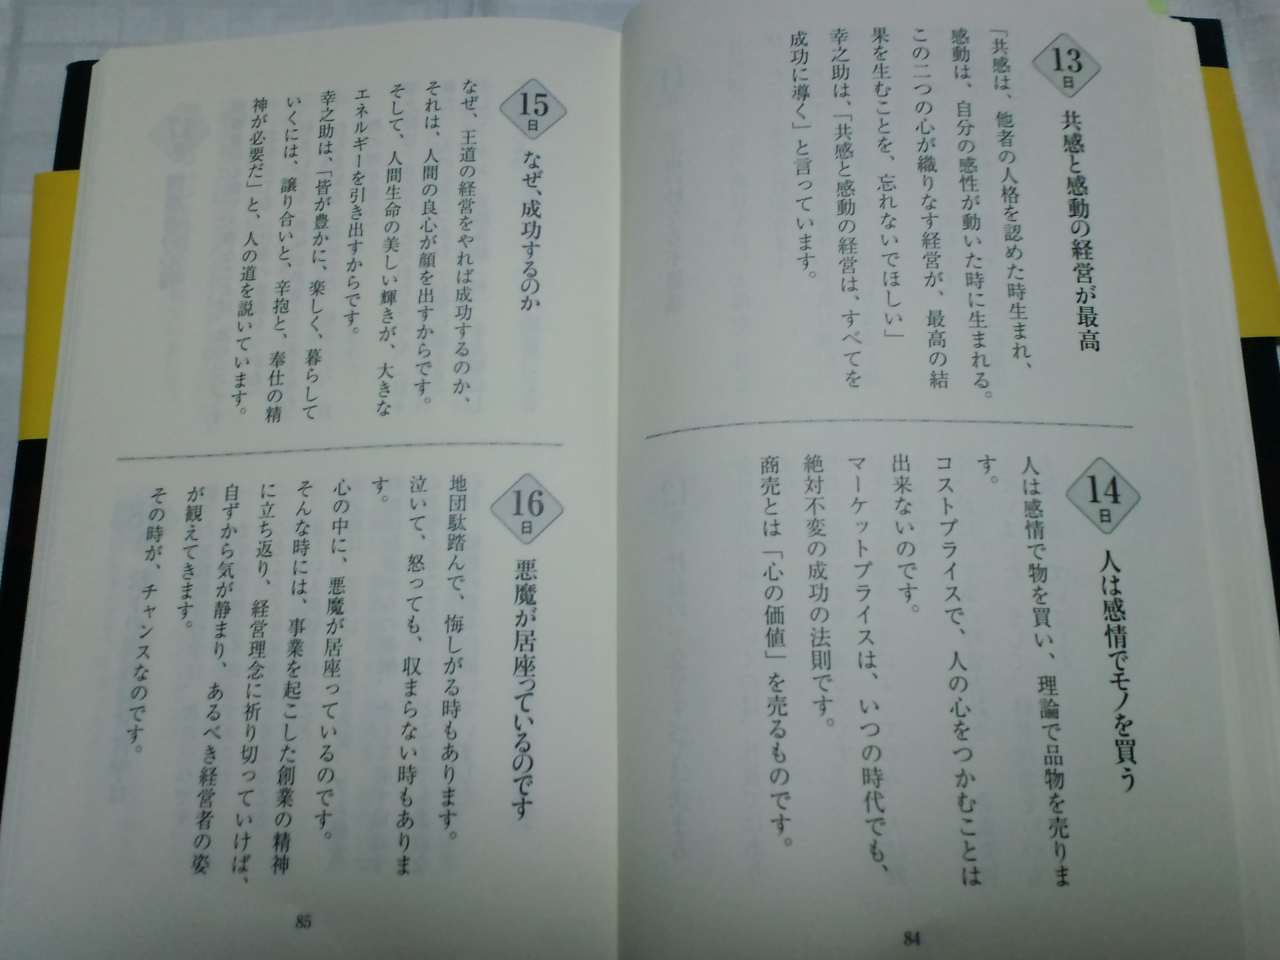 13日
共感と感動の経営が最高
「共感は、他者の人格を認めた時生まれ、
感動は、自分の感性が動いた時に生まれる。
この二つの心が織りなす経営が、最高の結
果を生むことを、忘れないでほしい」
幸之助は、「共感と感動の経営は、すべてを
成功に導く」と言っています。
14日
人は感情でモノを買う
人は感情で物を買い、理論で品物を売りま
す。
コストプライスで、人の心をつかむことは
出来ないのです。
マーケットプライスは、いつの時代でも、
絶対不変の成功の法則です。
商売とは「心の価値」を売るものです。
84
15日
なぜ、成功するのか
なぜ、王道の経営をやれば成功するのか、
それは、人間の良心が顔を出すからです。
そして、人間生命の美しい輝きが、大きな
エネルギーを引き出すからです。
幸之助は、「皆が豊かに、楽しく、暮らして
いくには、譲り合いと、辛抱と、奉仕の精
神が必要だ」と、人の道を説いています。
16日
悪魔が居座っているのです
地団駄踏んで、悔しがる時もあります。
泣いて、怒っても、収まらない時もありま
す。
心の中に、悪魔が居座っているのです。
そんな時には、事業を起こした創業の精神
に立ち返り、経営理念に祈り切っていけば、
自ずから気が静まり、あるべき経営者の姿
が観えてきます。
その時が、チャンスなのです。
85